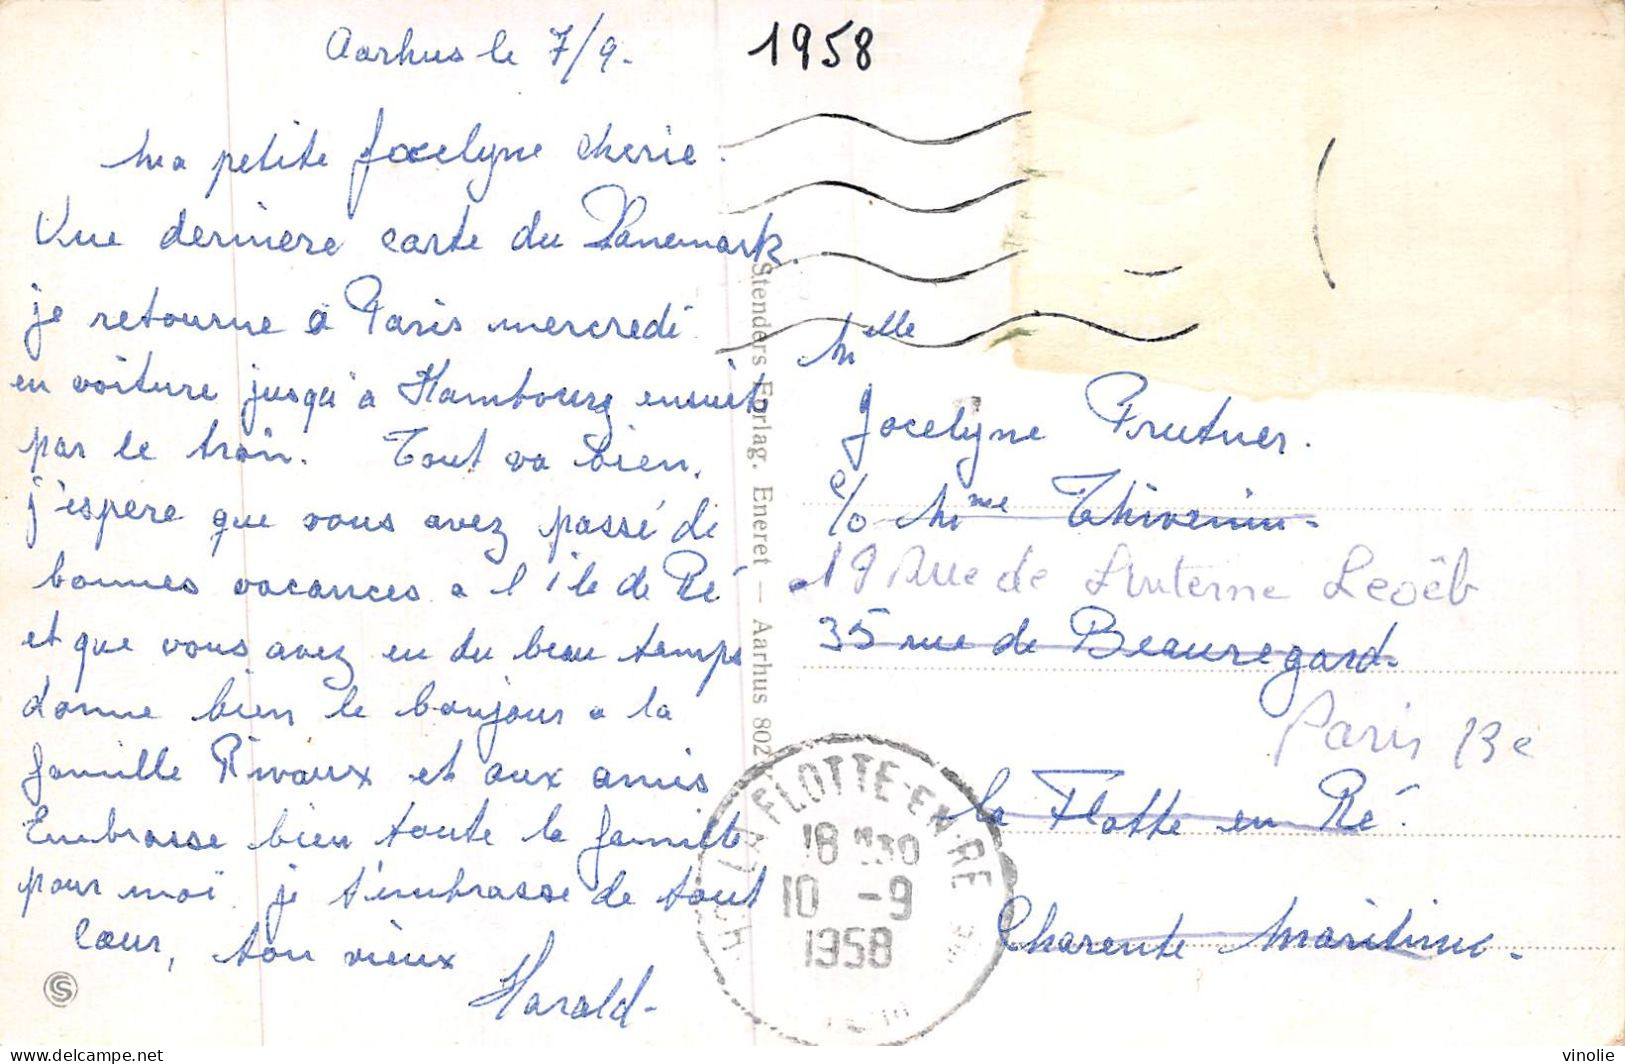 Aarhus le 7/9.
1958
Ma petite Jocelyne cherie.
Une derniere carte du Danemark.
je retourne a Paris mercredi
en voiture jusqu'a Hambourg ensuite
par le train. Tout va bien.
j'espere que vous avez passé de
bonnes vacances a l'ile de Ré
et que vous avez eu du beau temps
donne bien le bonjour a la
famille Rivaux et aux amis
Embrasse bien toute la famille
pour moi. je t'embrasse de tout
Coeur, ton vieux
Harald-
S
Stenders Forlag. Eneret — Aarhus 802
Mlle
Jocelyne Frutner.
c/o Mme Thivenin-
19 Rue de
35 rue de Beauregard-
Paris 13e
la Flotte en Ré.
Charente Maritime-
LA FLOTTE-EN-RE
18 H30
10 -9
1958
delcampe.net
vinolie